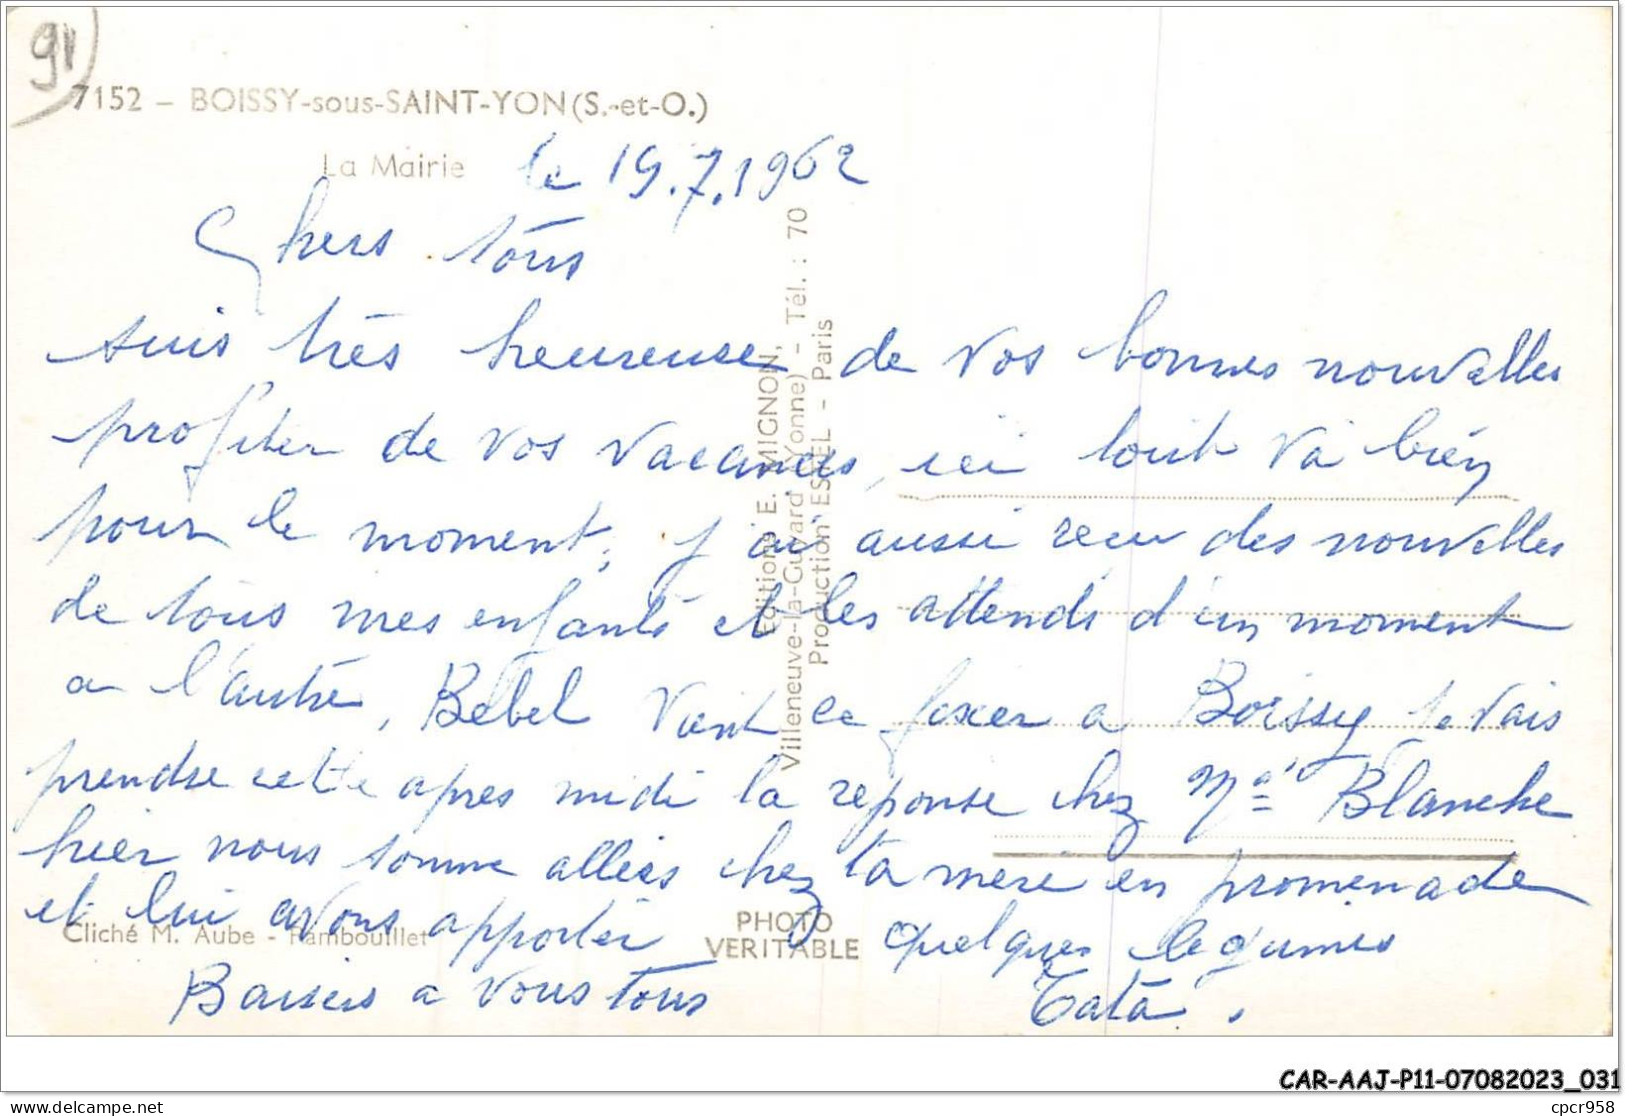 91
7152 - BOISSY-sous-SAINT-YON (S.-et-O.)
La Mairie
le 19.7.1962
Chers tous
suis très heureuse de vos bonnes nouvelles
profiter de vos vacances, ici tout va bien
pour le moment, j'ai aussi reçu des nouvelles
de tous mes enfants et les attends d'un moment
a l'autre, Bebel vient ce fixer a Boissy je vais
prendre cette apres midi la reponse chez Me Blanche
hier nous somme allées chez ta mere en promenade
et lui avons apporter quelques legumes
Baisers a vous tous Tata.
Editions E. MIGNON,
Villeneuve-la-Guyard (Yonne) - Tél. : 70
Production ESTEL - Paris
Cliché M. Aube - Rambouillet
PHOTO
VERITABLE
CAR-AAJ-P11-07082023_031
delcampe.net
cpcr958